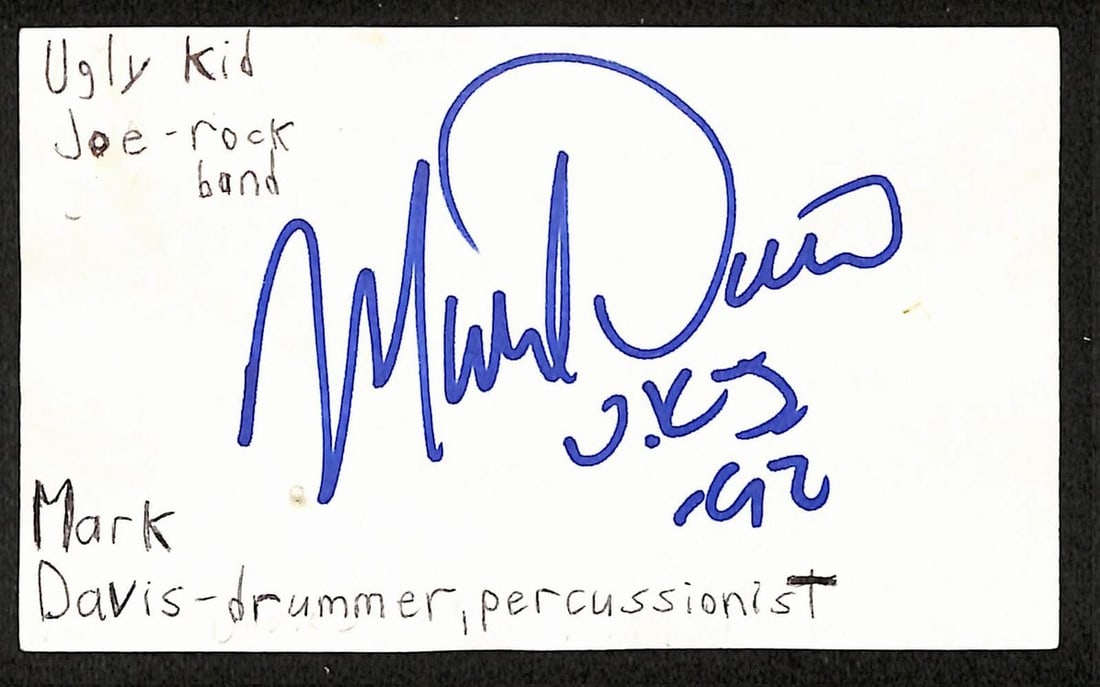 Ugly Kid
Joe-rock
band
Mark Davis
U.KJ
-92
Mark
Davis-drummer, percussionist